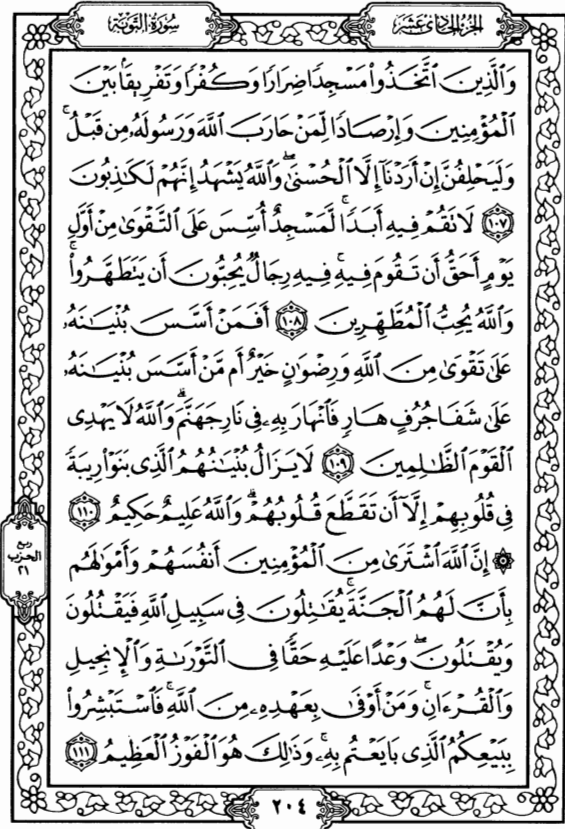 سُورَةُ التَّوْبَةِ
الجُزْءُ الحَادِي عَشَرَ
وَٱلَّذِينَ ٱتَّخَذُوا۟ مَسْجِدًا ضِرَارًا وَكُفْرًا وَتَفْرِيقًۢا بَيْنَ
ٱلْمُؤْمِنِينَ وَإِرْصَادًا لِّمَنْ حَارَبَ ٱللَّهَ وَرَسُولَهُۥ مِن قَبْلُ ۚ
وَلَيَحْلِفُنَّ إِنْ أَرَدْنَآ إِلَّا ٱلْحُسْنَىٰ ۖ وَٱللَّهُ يَشْهَدُ إِنَّهُمْ لَكَـٰذِبُونَ
١٠٧ لَا تَقُمْ فِيهِ أَبَدًا ۚ لَّمَسْجِدٌ أُسِّسَ عَلَى ٱلتَّقْوَىٰ مِنْ أَوَّلِ
يَوْمٍ أَحَقُّ أَن تَقُومَ فِيهِ ۚ فِيهِ رِجَالٌ يُحِبُّونَ أَن يَتَطَهَّرُوا۟ ۚ
وَٱللَّهُ يُحِبُّ ٱلْمُطَّهِّرِينَ ١٠٨ أَفَمَنْ أَسَّسَ بُنْيَـٰنَهُۥ
عَلَىٰ تَقْوَىٰ مِنَ ٱللَّهِ وَرِضْوَٰنٍ خَيْرٌ أَم مَّنْ أَسَّسَ بُنْيَـٰنَهُۥ
عَلَىٰ شَفَا جُرُفٍ هَارٍ فَٱنْهَارَ بِهِۦ فِى نَارِ جَهَنَّمَ ۗ وَٱللَّهُ لَا يَهْدِى
ٱلْقَوْمَ ٱلظَّـٰلِمِينَ ١٠٩ لَا يَزَالُ بُنْيَـٰنُهُمُ ٱلَّذِى بَنَوْا۟ رِيبَةً
فِى قُلُوبِهِمْ إِلَّآ أَن تَقَطَّعَ قُلُوبُهُمْ ۗ وَٱللَّهُ عَلِيمٌ حَكِيمٌ ١١٠
۞ إِنَّ ٱللَّهَ ٱشْتَرَىٰ مِنَ ٱلْمُؤْمِنِينَ أَنفُسَهُمْ وَأَمْوَٰلَهُم
بِأَنَّ لَهُمُ ٱلْجَنَّةَ ۚ يُقَـٰتِلُونَ فِى سَبِيلِ ٱللَّهِ فَيَقْتُلُونَ
وَيُقْتَلُونَ ۖ وَعْدًا عَلَيْهِ حَقًّا فِى ٱلتَّوْرَىٰةِ وَٱلْإِنجِيلِ
وَٱلْقُرْءَانِ ۚ وَمَنْ أَوْفَىٰ بِعَهْدِهِۦ مِنَ ٱللَّهِ ۚ فَٱسْتَبْشِرُوا۟
بِبَيْعِكُمُ ٱلَّذِى بَايَعْتُم بِهِۦ ۚ وَذَٰلِكَ هُوَ ٱلْفَوْزُ ٱلْعَظِيمُ ١١١
ربع
الحزب
٢١
٢٠٤